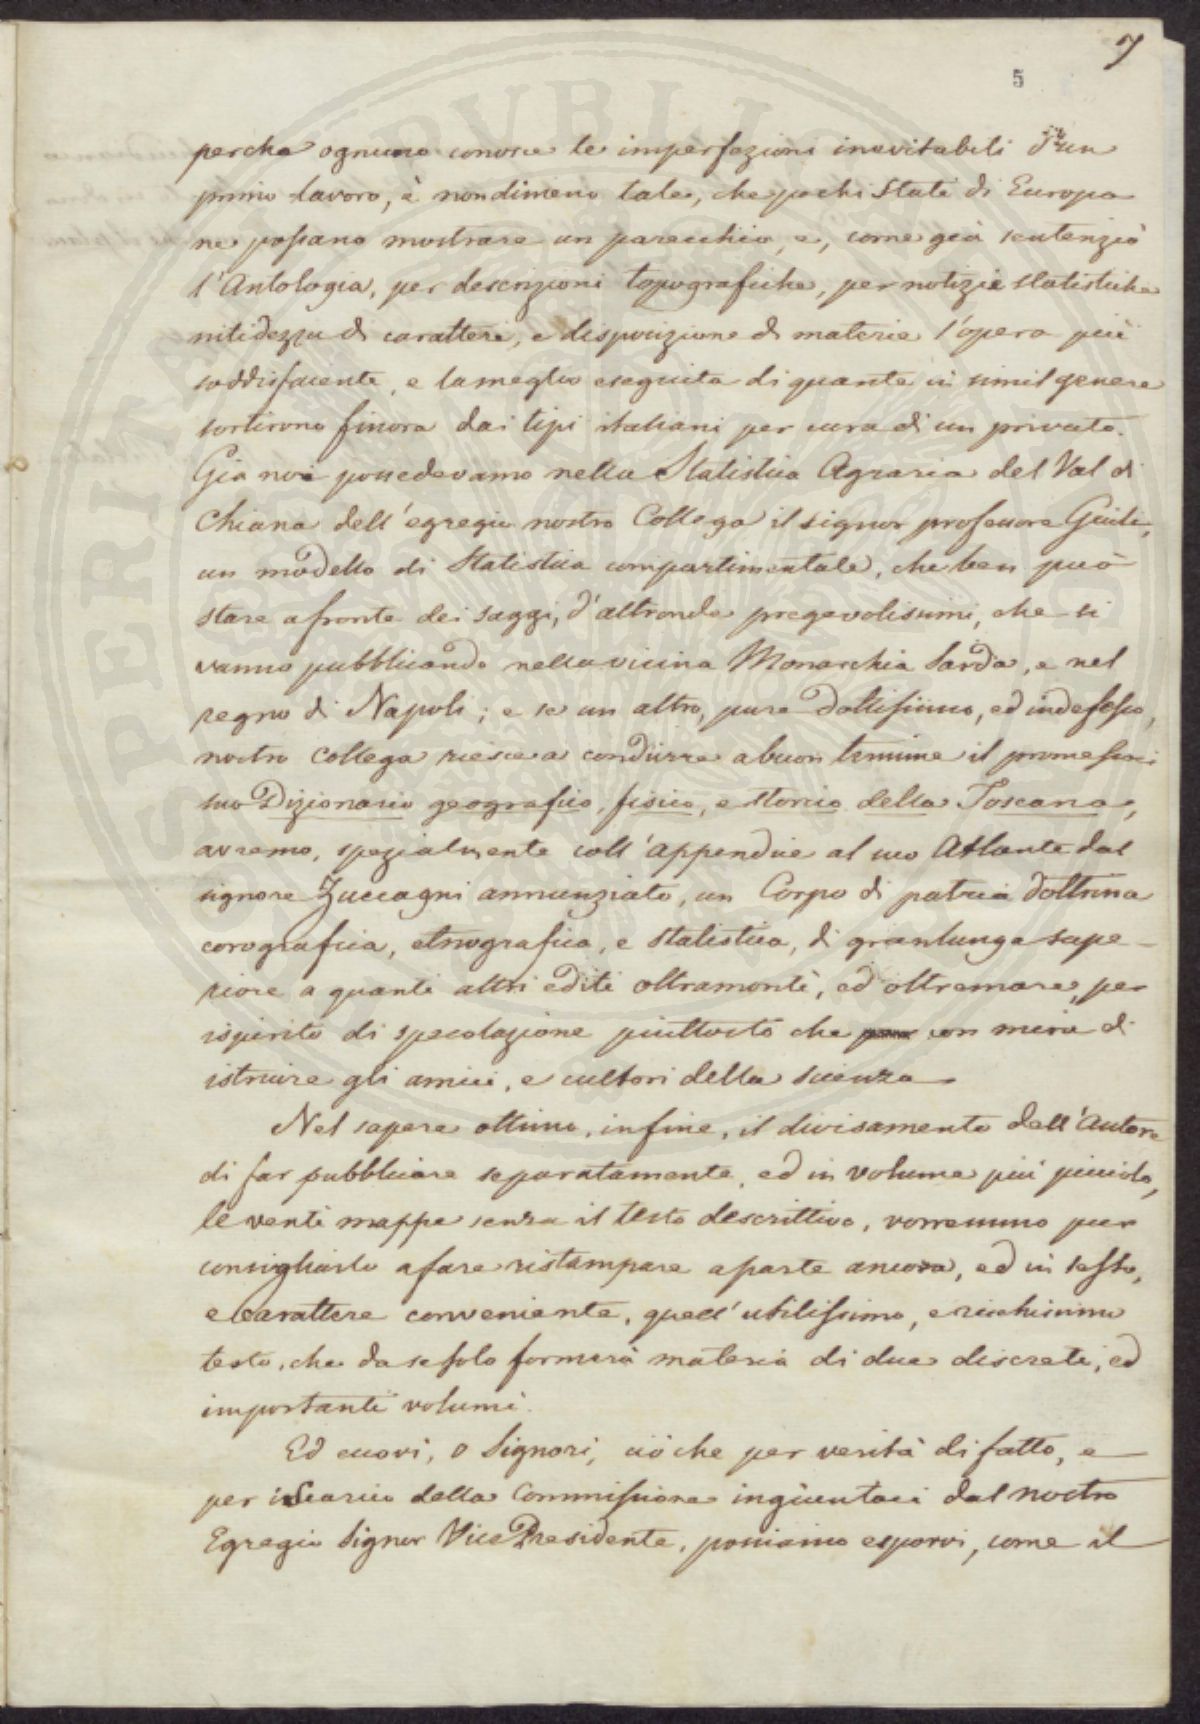 7
5
perche ognuno conosce le imperfezioni inevitabili d'un
primo lavoro, è nondimeno tale, che pochi Stati di Europa
ne possano mostrare un parecchio, e, come già sentenziò
l'Antologia, per descrizioni topografiche, per notizie statistiche
nitidezza di carattere, e disposizione di materie l'opera più
soddisfacente, e la meglio eseguita di quante in simil genere
sortirono finora dai tipi italiani per cura di un privato.
Gia noi possedevamo nella Statistica Agraria del Val di
Chiana dell'egregio nostro Collega il signor professore Giuli,
un modello di Statistica compartimentale, che ben può
stare a fronte dei saggi, d'altronde pregevolissimi, che si
vanno pubblicando nella vicina Monarchia Sarda, e nel
regno di Napoli; e se un altro, pure dottissimo, ed indefesso,
nostro Collega riesce a condurre a buon termine il promessoci
suo Dizionario geografico, fisico, e storico della Toscana,
avremo, spezialmente coll'appendice al suo Atlante dal
signore Zuccagni annunziato, un Corpo di patria dottrina
corografica, etnografica, e statistica, di gran lunga supe-
riore a quanti altri editi oltramonti, ed oltremare, per
ispirito di specolazione piuttosto che con mira di
istruire gli amici, e cultori della scienza.
Nel sapere ottimo, infine, il divisamento dell'Autore
di far pubblicare separatamente, ed in volume più piccolo,
le venti mappe senza il testo descrittivo, vorremmo pur
consigliarlo a fare ristampare a parte ancora, ed in sesto,
e carattere conveniente, quell'utilissimo, e ricchissimo
testo, che da se solo formerà materia di due discreti, ed
importanti volumi.
Ed eccovi, o Signori, ciò che per verità di fatto, e
per incarico della Commissione ingiuntaci dal nostro
Egregio Signor Vice Presidente, possiamo esporvi, come al